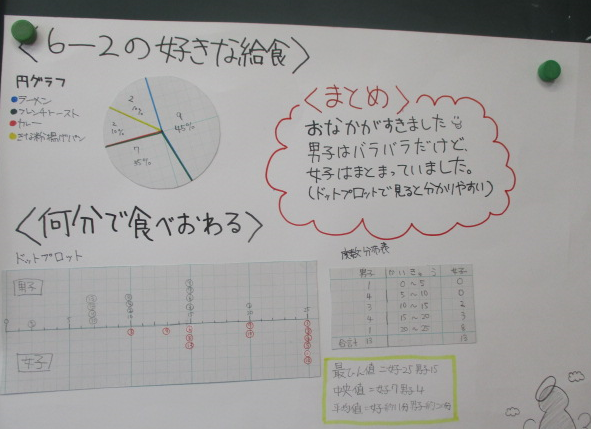 〈6-2の好きな給食〉
円グラフ
ラーメン
フレンチトースト
カレー
きな粉揚げパン
2
10%
2
10%
9
45%
7
35%
〈まとめ〉
おなかがすきました
男子はバラバラだけど、
女子はまとまっていました。
(ドットプロットで見ると分かりやすい)
〈何分で食べおわる〉
ドットプロット
男子
女子
度数分布表
男子 かいきゅう 女子
1 0～5 0
4 5～10 0
3 10～15 2
4 15～20 3
1 20～25 8
合計 13 13
最ひん値=女子25男子15
中央値=女子7男子4
平均値=女子